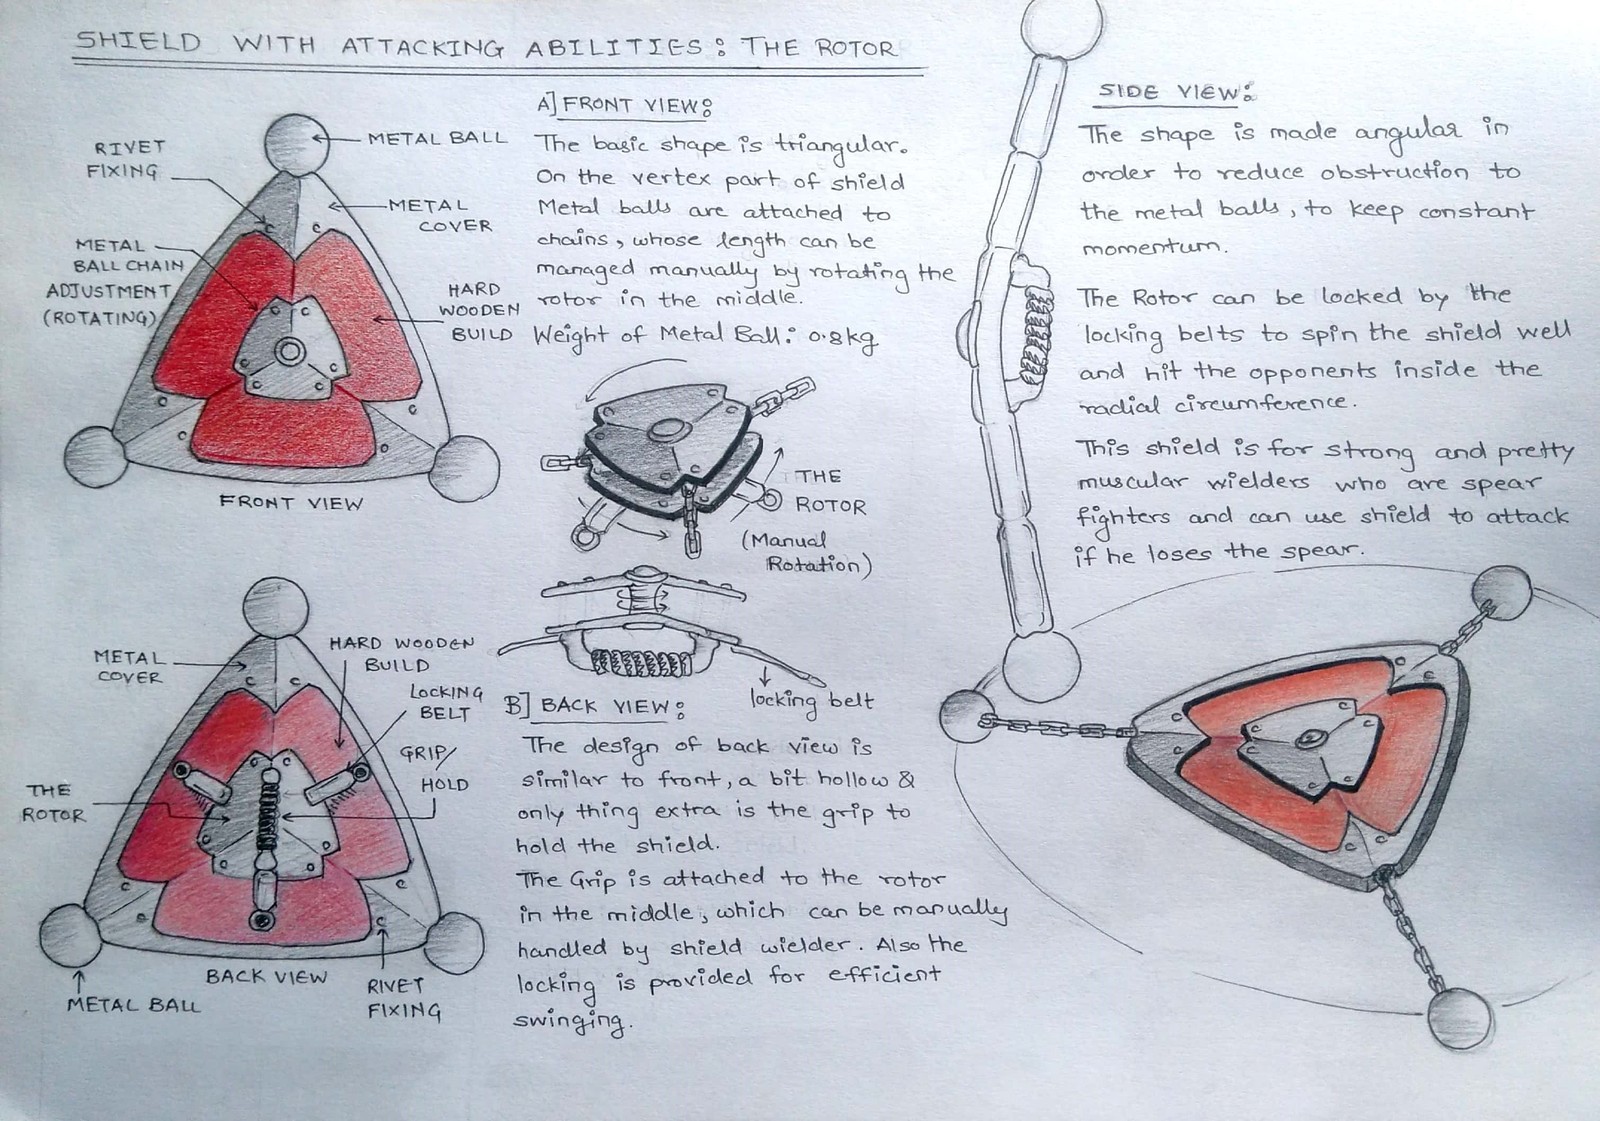 SHIELD WITH ATTACKING ABILITIES: THE ROTOR
RIVET
FIXING
METAL BALL
METAL
COVER
METAL
BALL CHAIN
ADJUSTMENT
(ROTATING)
HARD
WOODEN
BUILD
FRONT VIEW
A] FRONT VIEW:
The basic shape is triangular.
On the vertex part of shield
Metal balls are attached to
chains, whose length can be
managed manually by rotating the
rotor in the middle.
Weight of Metal Ball: 0.8kg
THE
ROTOR
(Manual
Rotation)
locking belt
METAL
COVER
HARD WOODEN
BUILD
LOCKING
BELT
GRIP/
HOLD
THE
ROTOR
BACK VIEW
METAL BALL
RIVET
FIXING
B] BACK VIEW:
The design of back view is
similar to front, a bit hollow &
only thing extra is the grip to
hold the shield.
The Grip is attached to the rotor
in the middle, which can be manually
handled by shield wielder. Also the
locking is provided for efficient
swinging.
SIDE VIEW:
The shape is made angular in
order to reduce obstruction to
the metal balls, to keep constant
momentum.
The Rotor can be locked by the
locking belts to spin the shield well
and hit the opponents inside the
radial circumference.
This shield is for strong and pretty
muscular wielders who are spear
fighters and can use shield to attack
if he loses the spear.